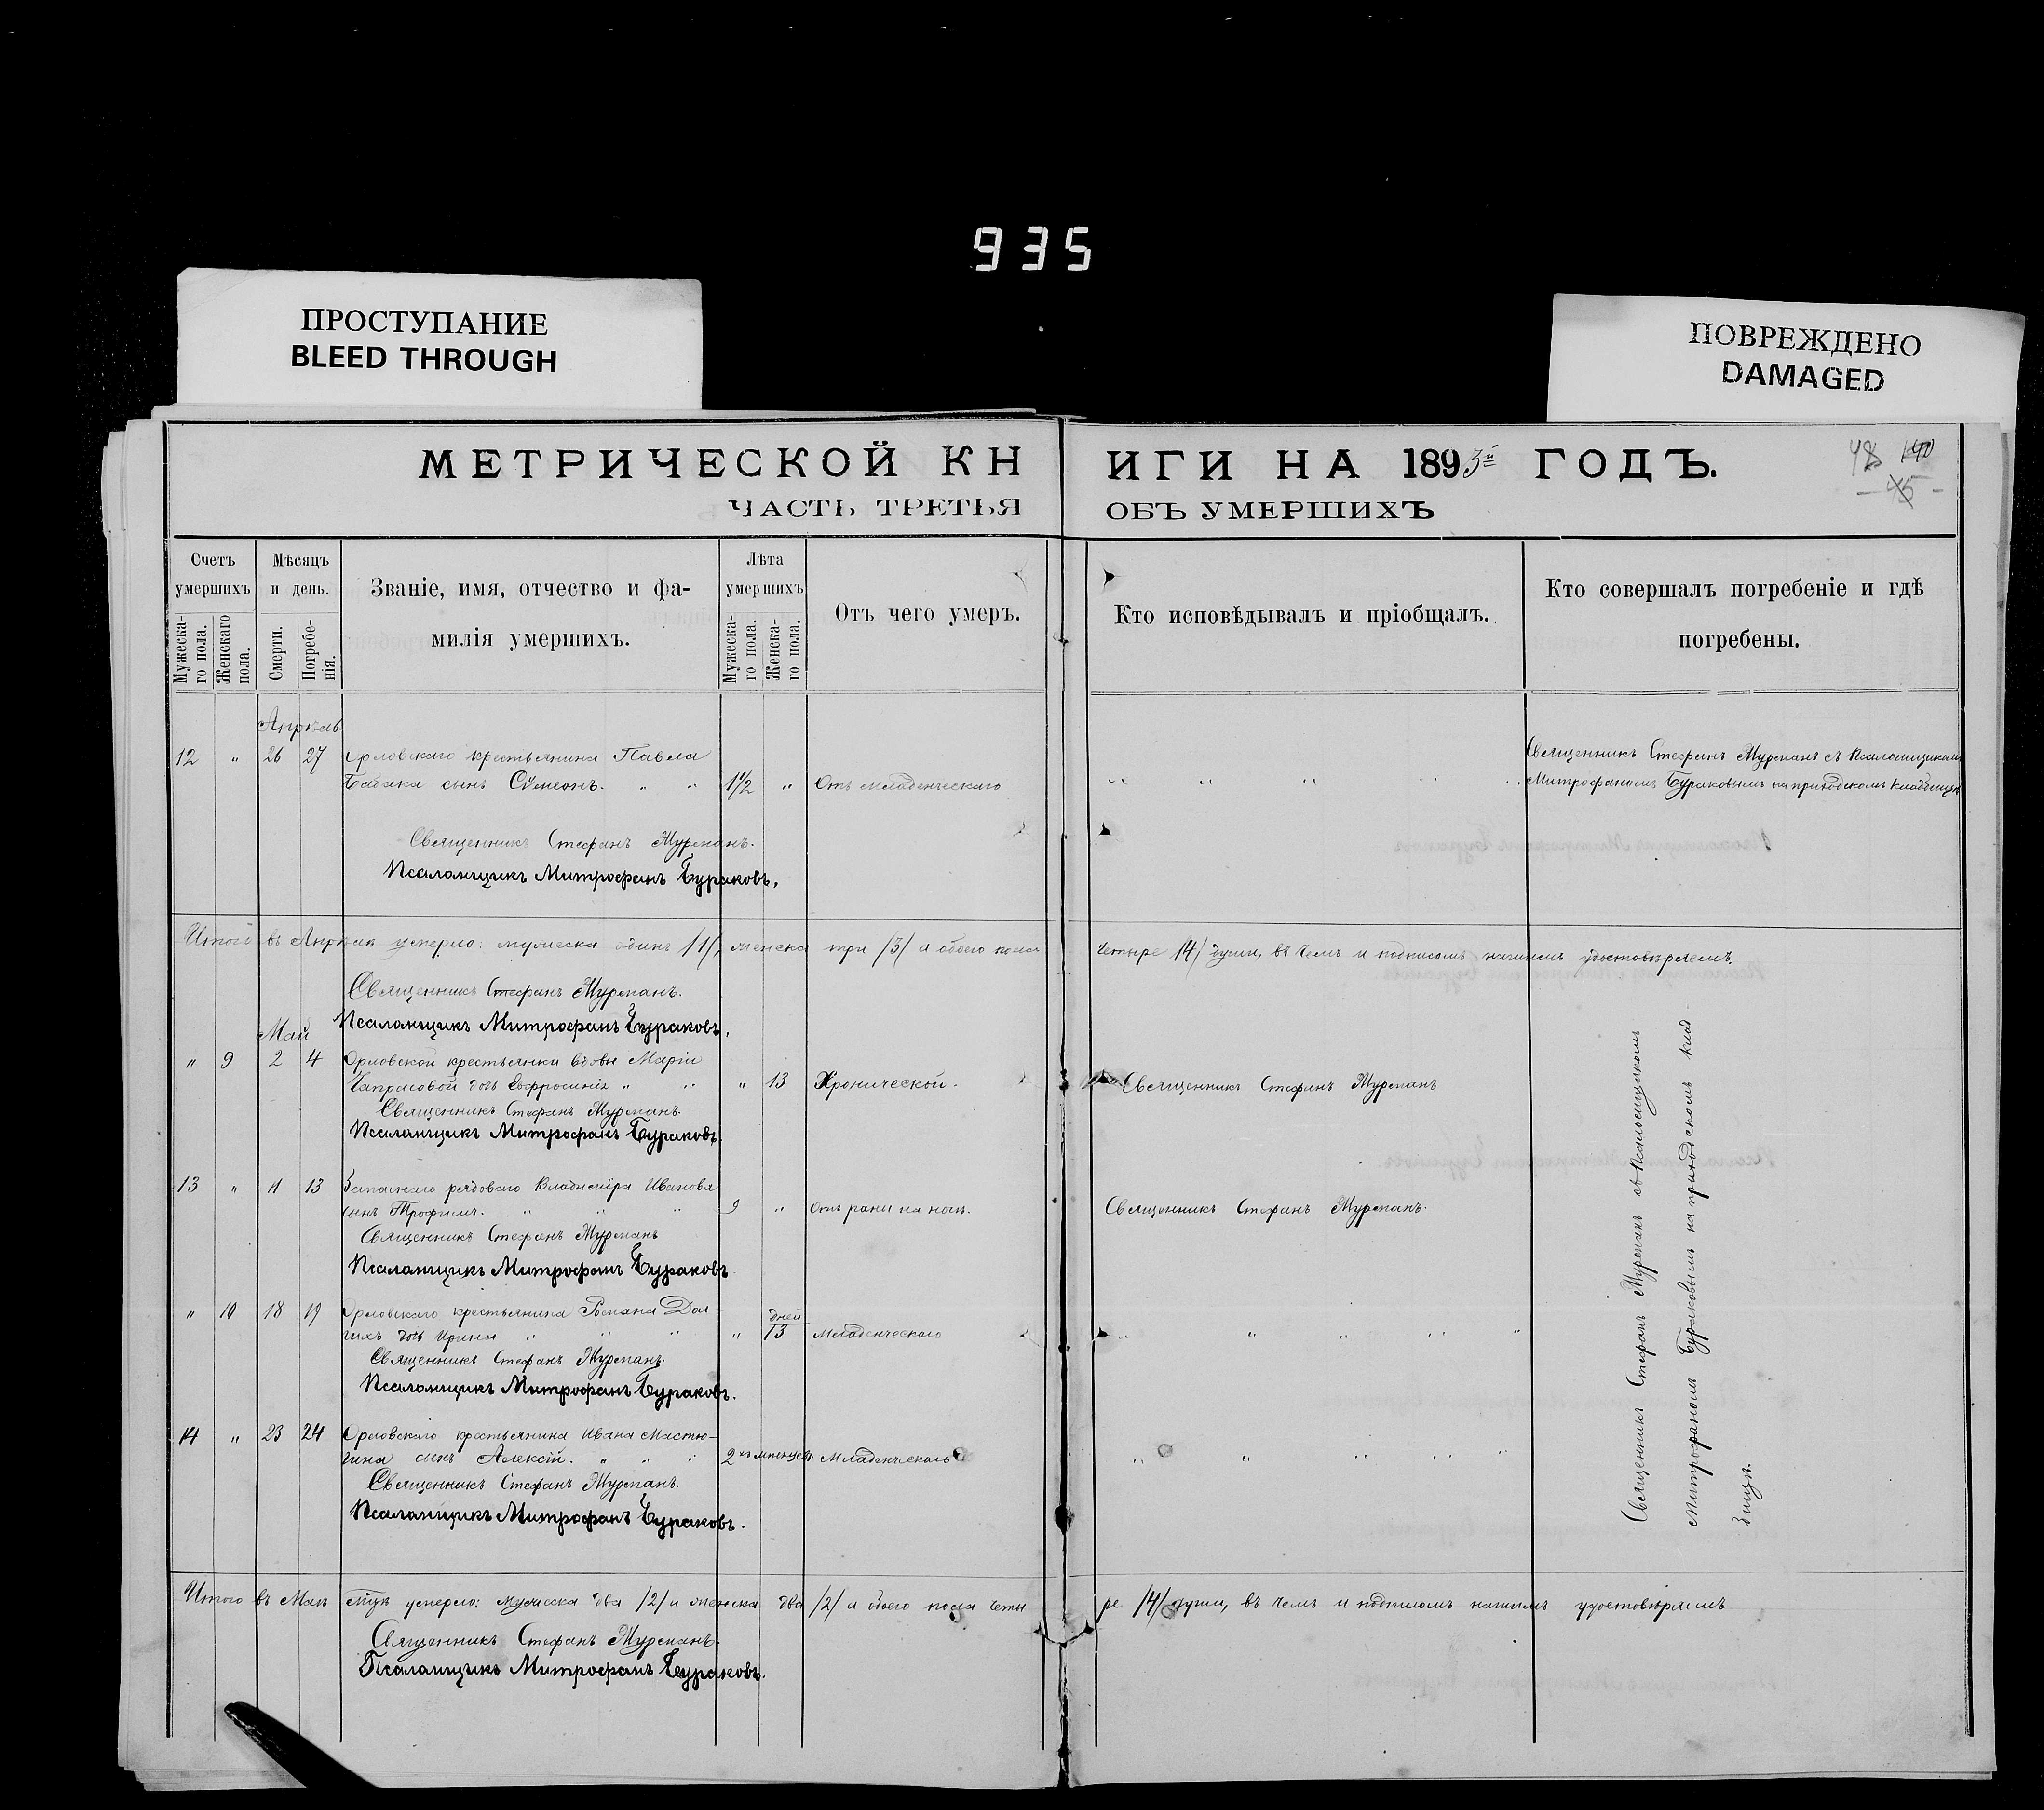 935
ПРОСТУПАНИЕ
BLEED THROUGH
ПОВРЕЖДЕНО
DAMAGED
МЕТРИЧЕСКОЙ КНИГИ НА 1893й ГОДЪ.
48 140
45
ЧАСТЬ ТРЕТЬЯ ОБЪ УМЕРШИХЪ
Счетъ умершихъ
Мужескаго пола.
Женскаго пола.
Мѣсяцъ и день.
Смерти.
Погребенія.
Званіе, имя, отчество и фамилія умершихъ.
Лѣта умершихъ
Мужескаго пола.
Женскаго пола.
Отъ чего умеръ.
Кто исповѣдывалъ и пріобщалъ.
Кто совершалъ погребеніе и гдѣ погребены.
Апрѣль
12 " 26 27 Орловскаго крестьянина Павла
Бабака сынъ Сѵмеонъ. " " 1 1/2 " Отъ младенческаго
Священникъ Стефанъ Мурманъ съ Псаломщикомъ
Митрофаномъ Бураковымъ на приходскомъ кладбищѣ
Священникъ Стефанъ Мурманъ.
Псаломщикъ Митрофанъ Бураковъ.
Итого въ Апрѣлѣ умерло: мужеска одинъ /1/, женска три /3/ а обоего пола четыре /4/ души, въ чемъ и подписомъ нашимъ удостовѣряемъ.
Священникъ Стефанъ Мурманъ.
Псаломщикъ Митрофанъ Бураковъ.
Май
" 9 2 4 Орловской крестьянки вдовы Маріи
дочь Евфросинія " " " 13 Хронической. Священникъ Стефанъ Мурманъ
Священникъ Стефанъ Мурманъ.
Псаломщикъ Митрофанъ Бураковъ.
13 " 11 13 Запаснаго рядового Владиміра Иванова
сынъ Трофимъ. " " " 9 " Отъ раны на ногѣ. Священникъ Стефанъ Мурманъ.
Священникъ Стефанъ Мурманъ
Псаломщикъ Митрофанъ Бураковъ
" 10 18 19 Орловскаго крестьянина Романа Дол-
гихъ дочь Ирина " " " " дней 13 Младенческаго " " " " "
Священникъ Стефанъ Мурманъ.
Псаломщикъ Митрофанъ Бураковъ.
14 " 23 24 Орловскаго крестьянина Ивана Мастю-
гина сынъ Алексій. " " " 2хъ мѣсяцевъ Младенческаго " " " " "
Священникъ Стефанъ Мурманъ.
Псаломщикъ Митрофанъ Бураковъ.
Священникъ Стефанъ Мурманъ съ Псаломщикомъ
Митрофаномъ Бураковымъ на приходскомъ клад-
бищѣ.
Итого въ Маѣ умерло: мужеска два /2/ и женска два /2/ а обоего пола четыре /4/ души, въ чемъ и подписомъ нашимъ удостовѣряемъ
Священникъ Стефанъ Мурманъ.
Псаломщикъ Митрофанъ Бураковъ.